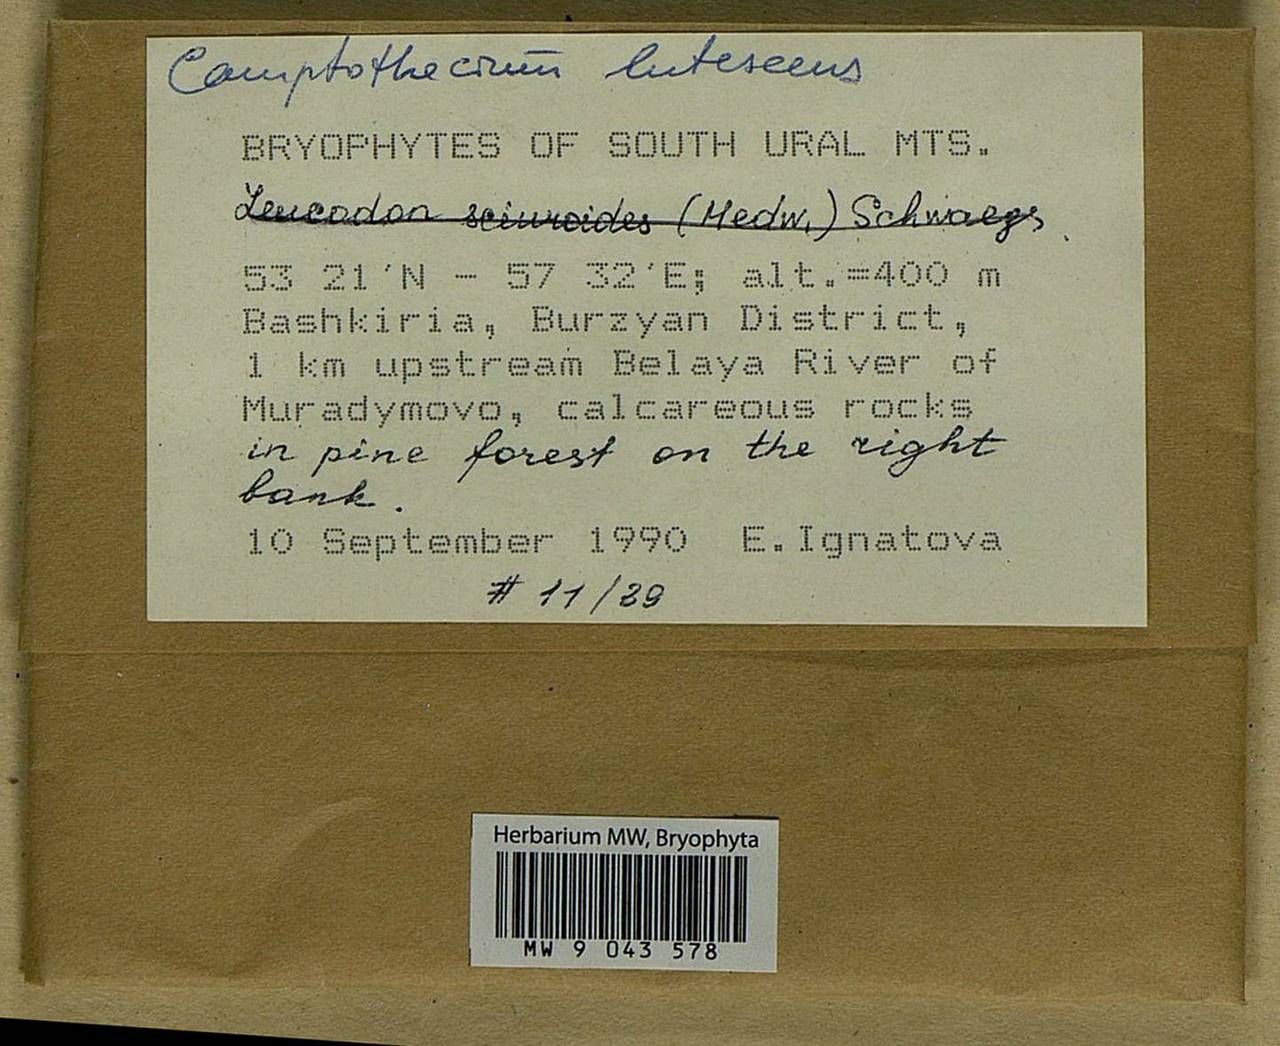 Camptothecium lutescens
BRYOPHYTES OF SOUTH URAL MTS.
Leucodon sciuroides (Hedw.) Schwaegr.
53 21'N - 57 32'E; alt.=400 m
Bashkiria, Burzyan District,
1 km upstream Belaya River of
Muradymovo, calcareous rocks
in pine forest on the right
bank.
10 September 1990 E.Ignatova
# 11/39
Herbarium MW, Bryophyta
MW 9 043 578